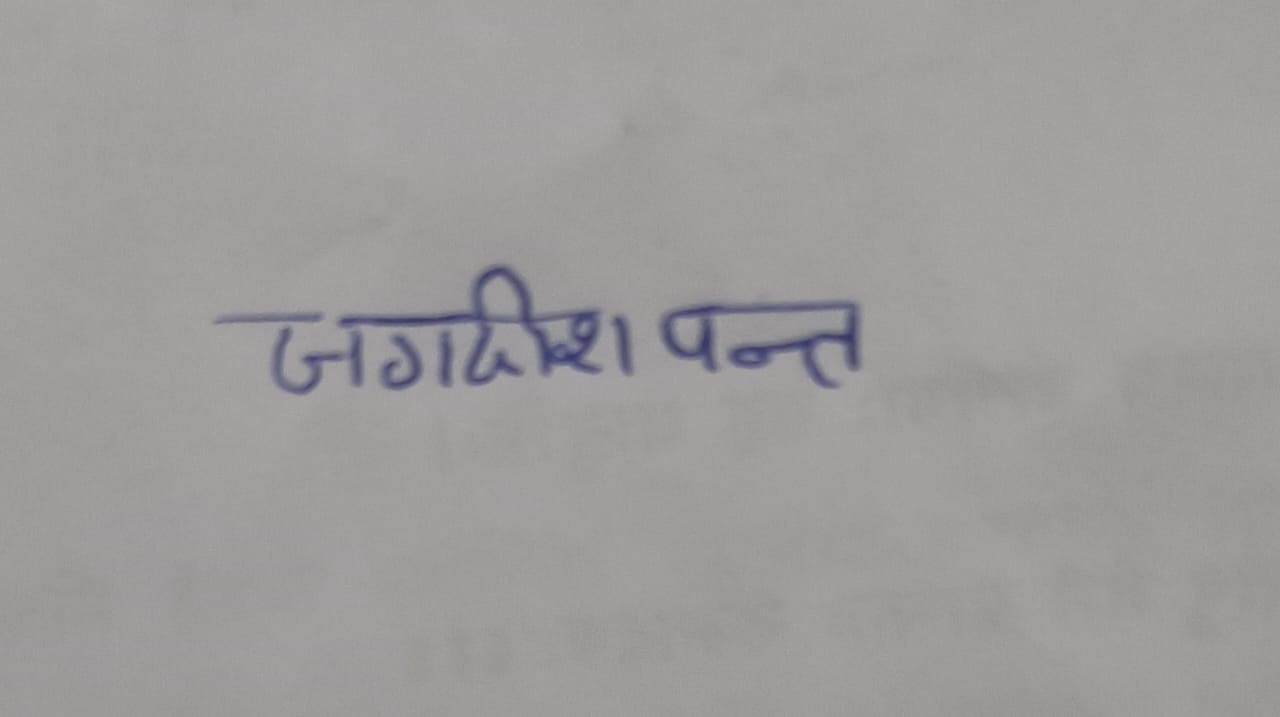 जगदीश पन्त